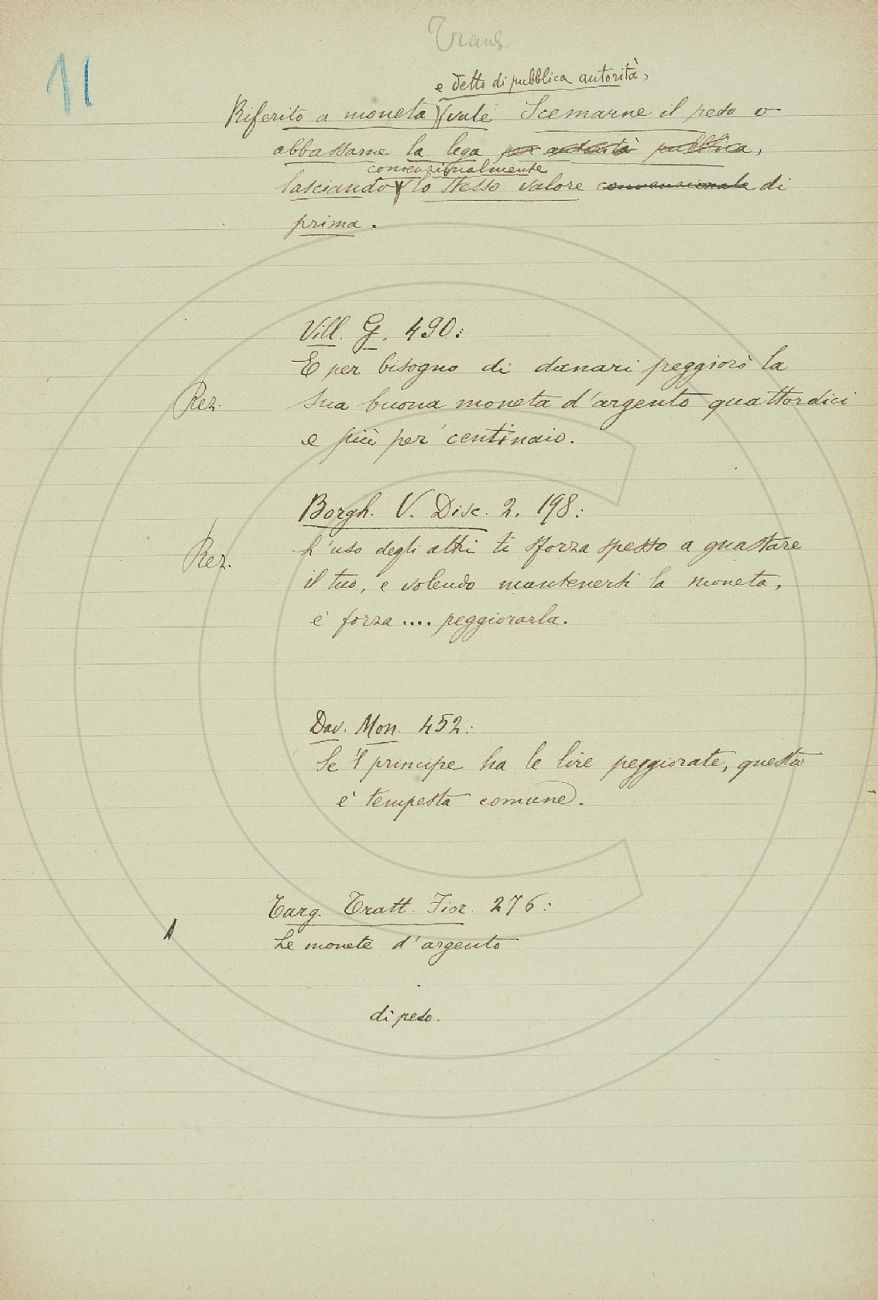 Trans.
11
e detto di pubblica autorità,
Riferito a moneta, vale Scemarne il peso o
abbassarne la lega per autorità pubblica,
convenzionalmente
lasciando lo stesso valore convenzionale di
prima.
Vill. G. 490:
E per bisogno di danari peggiorò la
Rez. sua buona moneta d'argento quattordici
e più per centinaio.
Borgh. V. Disc. 2. 198:
Rez. L'uso degli altri ti sforza spesso a guastare
il tuo, e volendo mantenersi la moneta,
è forza .... peggiorarla.
Dav. Mon. 452:
Se 'l principe ha le lire peggiorate, questa
è tempesta comune.
Targ. Tratt. Fior. 276:
Le monete d'argento
di peso.